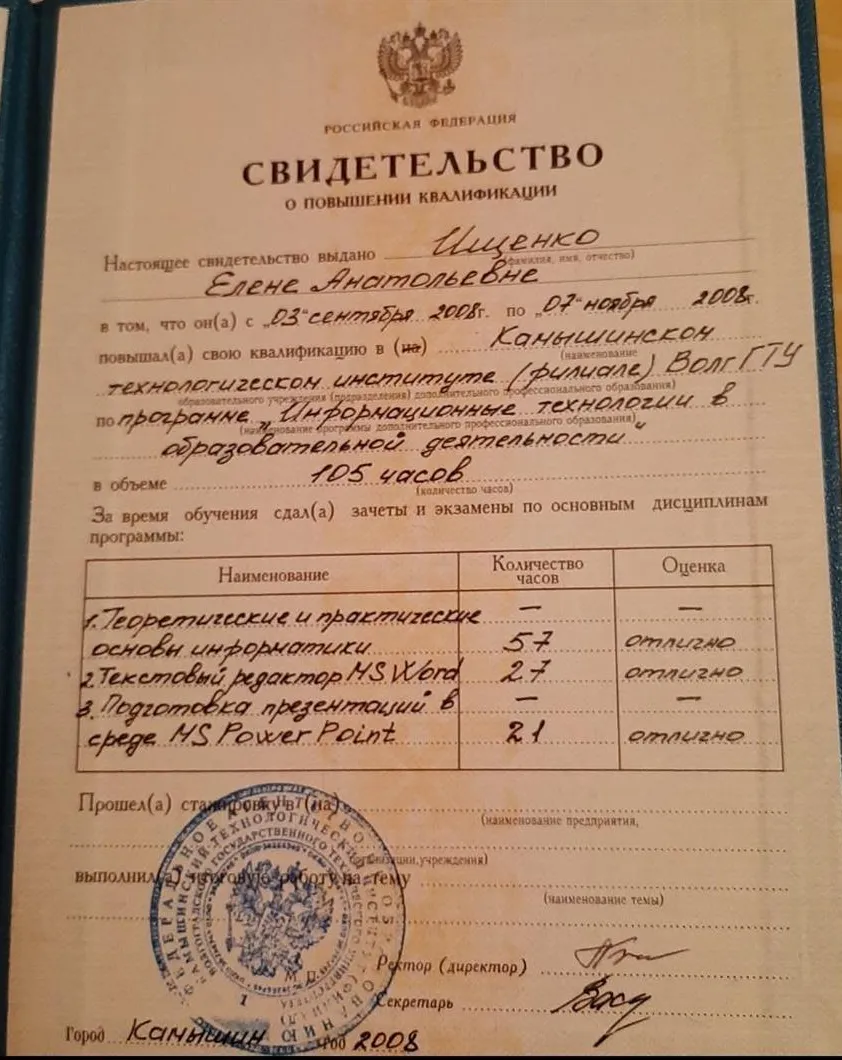 РОССИЙСКАЯ ФЕДЕРАЦИЯ
СВИДЕТЕЛЬСТВО
О ПОВЫШЕНИИ КВАЛИФИКАЦИИ
Настоящее свидетельство выдано Ищенко
(фамилия, имя, отчество)
Елене Анатольевне
в том, что он(а) с „03“ сентября 2008г. по „07“ ноября 2008г.
повышал(а) свою квалификацию в (на) Камышинском
(наименование
технологическом институте (филиале) ВолгГТУ
образовательного учреждения (подразделения) дополнительного профессионального образования)
по программе „Информационные технологии в
(наименование программы дополнительного профессионального образования)
образовательной деятельности“
в объеме 105 часов
(количество часов)
За время обучения сдал(а) зачеты и экзамены по основным дисциплинам
программы:
Наименование Количество часов Оценка
1. Теоретические и практические — —
основы информатики 57 отлично
2. Текстовый редактор MS Word 27 отлично
3. Подготовка презентаций в — —
среде MS Power Point 21 отлично
Прошел(а) стажировку в (на)
(наименование предприятия,
организации, учреждения)
выполнил(а) итоговую работу на тему
(наименование темы)
М. П.
Ректор (директор)
Секретарь
Город Камышин год 2008
ФЕДЕРАЛЬНОЕ АГЕНТСТВО ПО ОБРАЗОВАНИЮ
КАМЫШИНСКИЙ ТЕХНОЛОГИЧЕСКИЙ ИНСТИТУТ (ФИЛИАЛ)
ВОЛГОГРАДСКОГО ГОСУДАРСТВЕННОГО ТЕХНИЧЕСКОГО УНИВЕРСИТЕТА
1